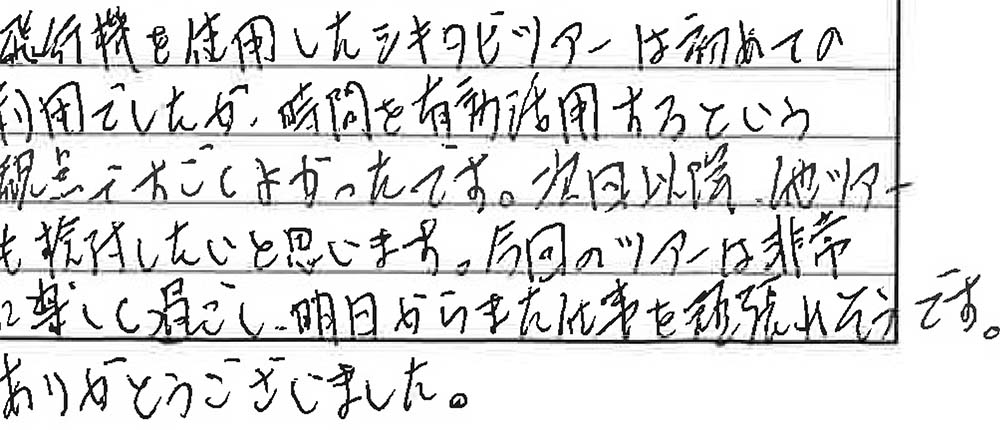 飛行機を使用したシキタビツアーは初めての
利用でしたが、時間を有効活用するという
観点ですごくよかったです。次回以降、他ツアー
も検討したいと思います。今回のツアーは非常
に楽しく過ごし、明日からまた仕事を頑張れそうです。
ありがとうございました。